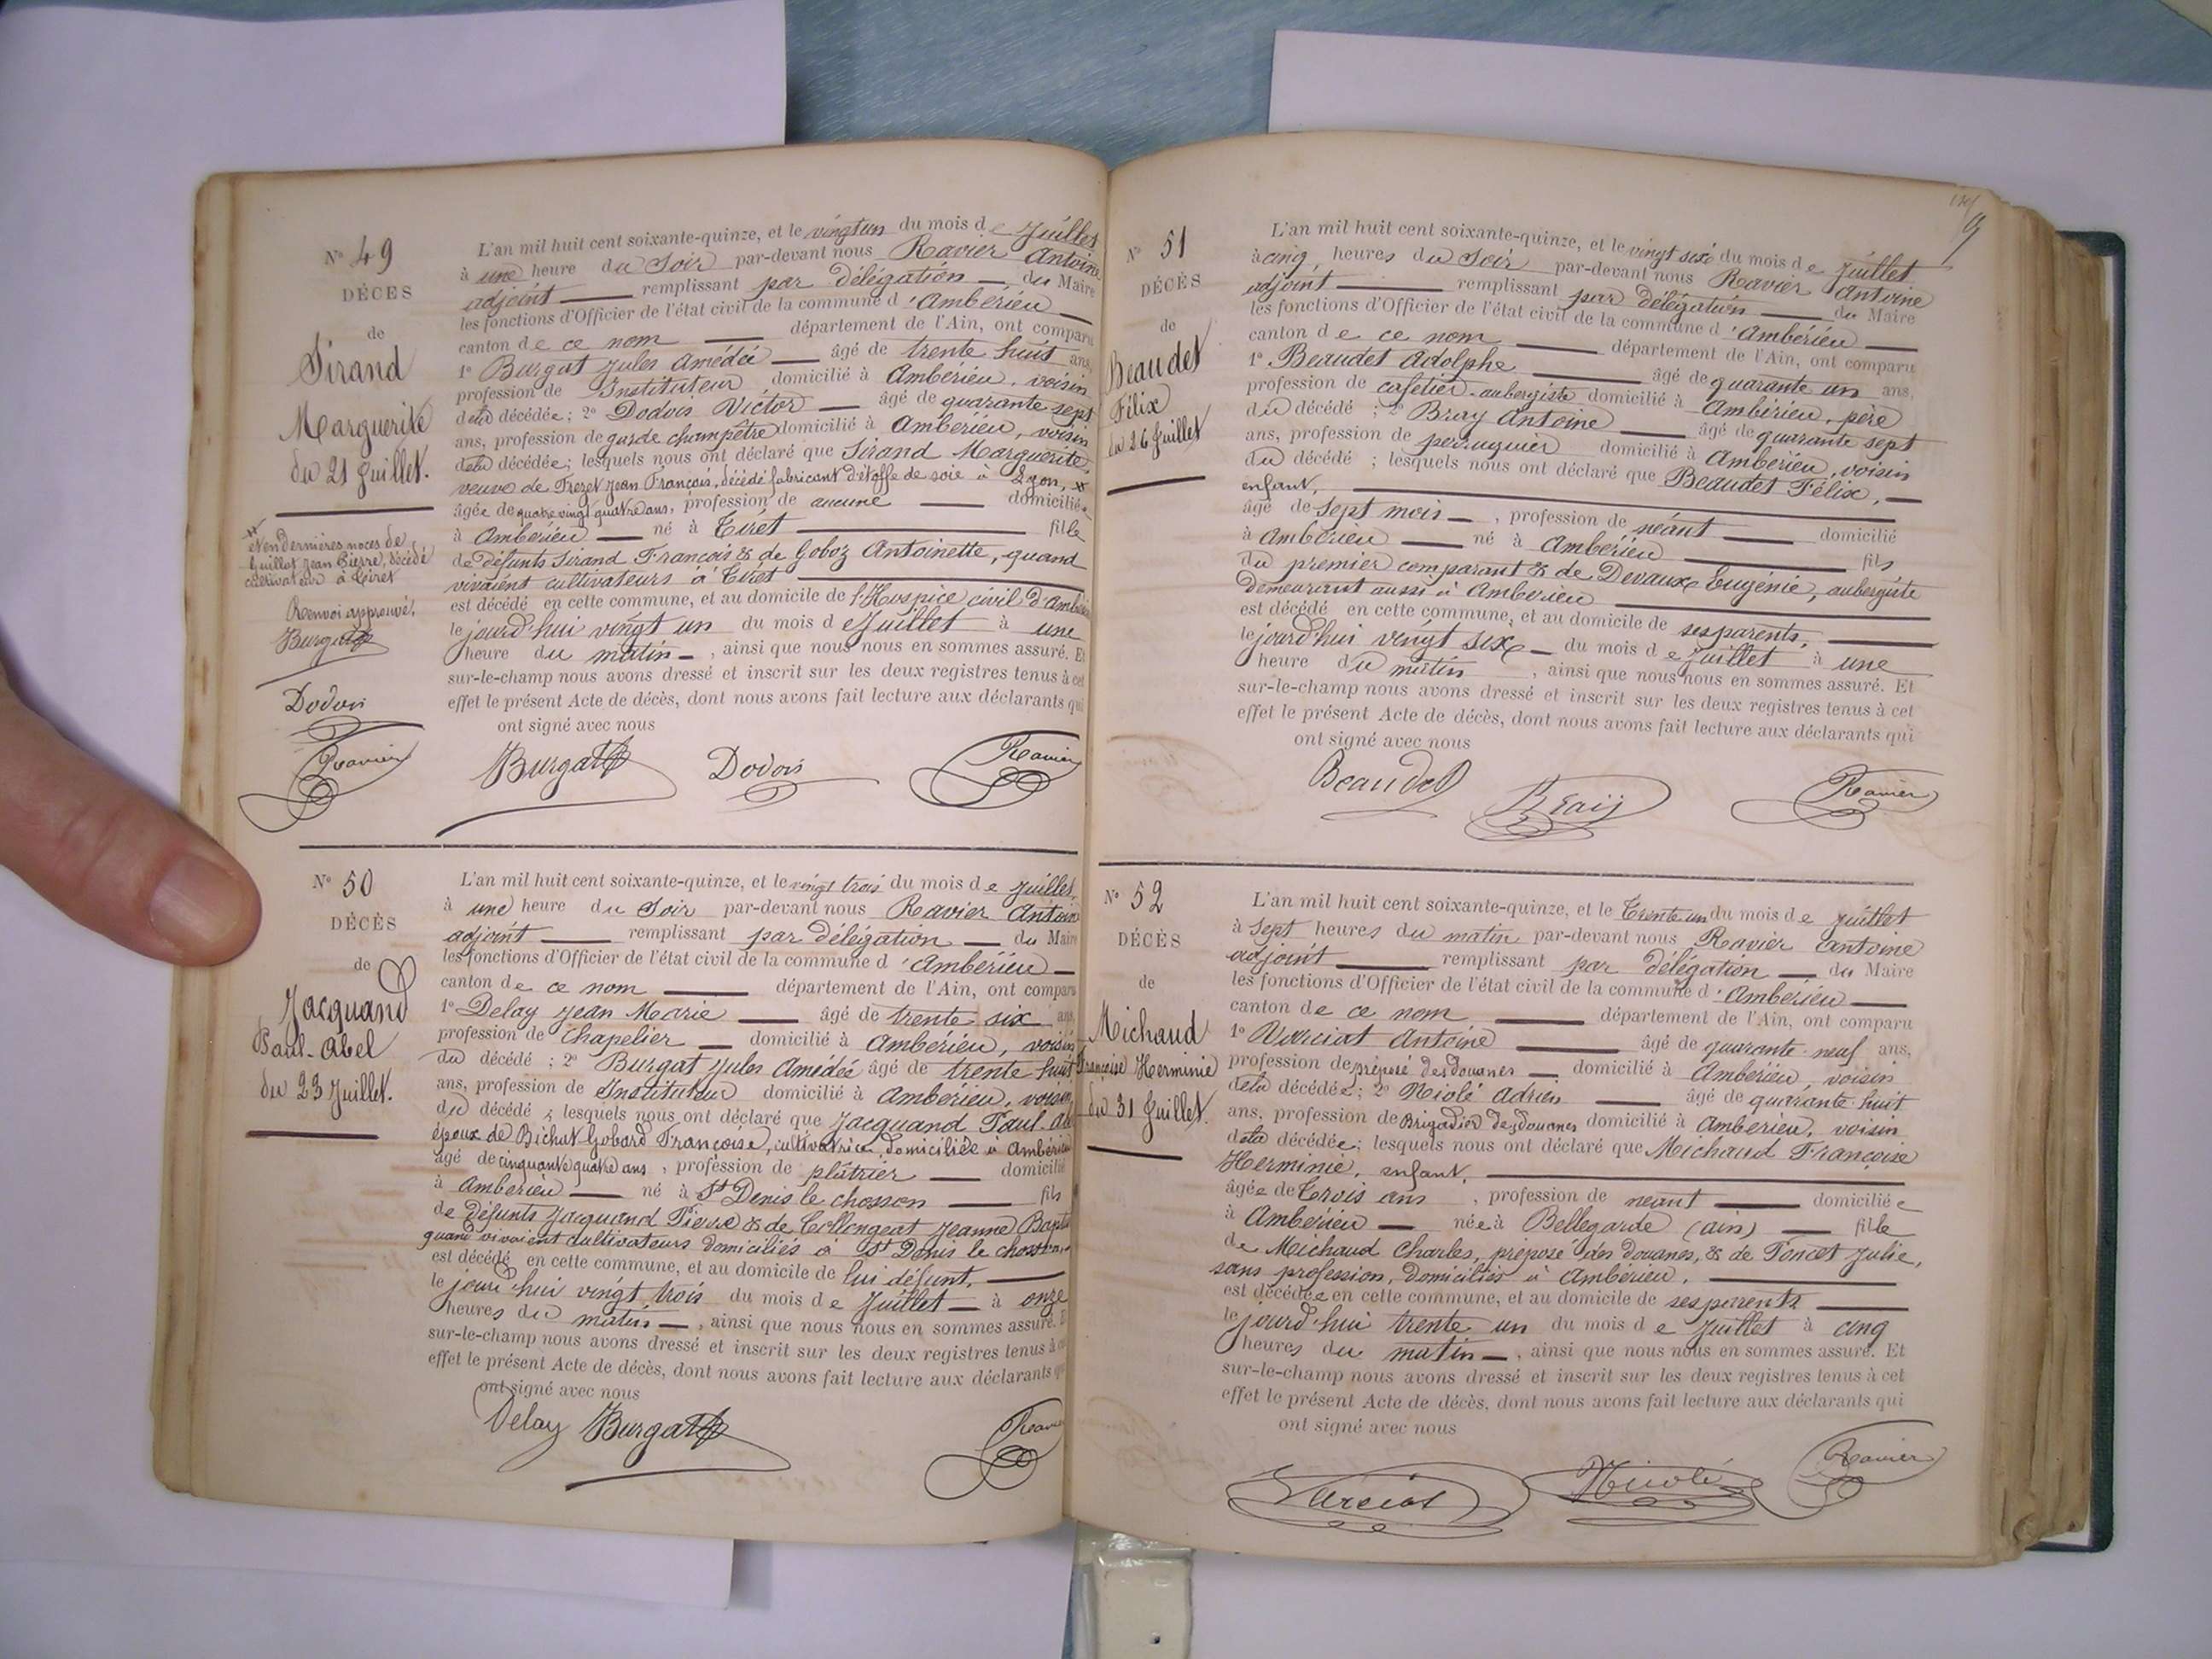 N° 49
DÉCÈS
de
Sirand
Marguerite
du 21 Juillet.
et en dernières noces de
Guillot Jean Pierre, décédé
cultivateur à Tiret
Renvoi approuvé.
Burgat
Dodois
Ravier
L'an mil huit cent soixante-quinze, et le vingt un du mois de Juillet
à une heure du Soir par-devant nous Ravier Antoine
adjoint remplissant par délégation du Maire
les fonctions d'Officier de l'état civil de la commune d'Ambérieu
canton de ce nom département de l'Ain, ont comparu
1° Burgat Jules Amédée âgé de trente huit ans,
profession de Instituteur domicilié à Ambérieu, voisin
de la décédée; 2° Dodois Victor âgé de quarante sept
ans, profession de garde champêtre domicilié à Ambérieu, voisin
de la décédée; lesquels nous ont déclaré que Sirand Marguerite,
veuve de Trezet Jean François, décédé fabricant d'étoffe de soie à Lyon,
âgée de quatre vingt quatre ans, profession de aucune domiciliée
à Ambérieu né à Tiret fille
de défunts Sirand François & de Goboz Antoinette, quand
vivaient cultivateurs à Tiret
est décédé en cette commune, et au domicile de l'Hospice civil d'Ambérieu
le jourd'hui vingt un du mois de Juillet à une
heure du matin, ainsi que nous nous en sommes assuré. Et
sur-le-champ nous avons dressé et inscrit sur les deux registres tenus à cet
effet le présent Acte de décès, dont nous avons fait lecture aux déclarants qui
ont signé avec nous
Burgat Dodois Ravier
N° 50
DÉCÈS
de
Jacquand
Paul-Abel
du 23 Juillet.
L'an mil huit cent soixante-quinze, et le vingt trois du mois de Juillet,
à une heure du Soir par-devant nous Ravier Antoine
adjoint remplissant par délégation du Maire
les fonctions d'Officier de l'état civil de la commune d'Ambérieu
canton de ce nom département de l'Ain, ont comparu
1° Delay Jean Marie âgé de trente six ans,
profession de Chapelier domicilié à Ambérieu, voisin
du décédé; 2° Burgat Jules Amédée âgé de trente huit
ans, profession de Instituteur domicilié à Ambérieu, voisin
du décédé; lesquels nous ont déclaré que Jacquand Paul-Abel
époux de Bichat Gobard Françoise, cultivatrice, domiciliée à Ambérieu
âgé de cinquante quatre ans, profession de plâtrier domicilié
à Ambérieu né à St Denis le chosson fils
de défunts Jacquand Pierre & de Collongeat Jeanne Baptiste
quand vivaient cultivateurs domiciliés à St Denis le chosson
est décédé en cette commune, et au domicile de lui défunt,
le jourd'hui vingt trois du mois de Juillet à onze
heures du matin, ainsi que nous nous en sommes assuré. Et
sur-le-champ nous avons dressé et inscrit sur les deux registres tenus à cet
effet le présent Acte de décès, dont nous avons fait lecture aux déclarants qui
ont signé avec nous
Delay Burgat Ravier
N° 51
DÉCÈS
de
Beaudet
Félix
du 26 Juillet
L'an mil huit cent soixante-quinze, et le vingt six du mois de Juillet
à cinq heures du Soir par-devant nous Ravier Antoine
adjoint remplissant par délégation du Maire
les fonctions d'Officier de l'état civil de la commune d'Ambérieu
canton de ce nom département de l'Ain, ont comparu
1° Beaudet Adolphe âgé de quarante un ans,
profession de cafetier-aubergiste domicilié à Ambérieu, père
du décédé; 2° Bray Antoine âgé de quarante sept
ans, profession de perruquier domicilié à Ambérieu, voisin
du décédé; lesquels nous ont déclaré que Beaudet Félix,
enfant,
âgé de sept mois, profession de néant domicilié
à Ambérieu né à Ambérieu fils
du premier comparant & de Devaux Eugénie, aubergiste
demeurant aussi à Ambérieu
est décédé en cette commune, et au domicile de ses parents,
le jourd'hui vingt six du mois de Juillet à une
heure du matin, ainsi que nous nous en sommes assuré. Et
sur-le-champ nous avons dressé et inscrit sur les deux registres tenus à cet
effet le présent Acte de décès, dont nous avons fait lecture aux déclarants qui
ont signé avec nous
Beaudet Braij Ravier
N° 52
DÉCÈS
de
Michaud
Françoise Herminie
du 31 Juillet.
L'an mil huit cent soixante-quinze, et le Trente un du mois de Juillet
à Sept heures du matin par-devant nous Ravier Antoine
adjoint remplissant par délégation du Maire
les fonctions d'Officier de l'état civil de la commune d'Ambérieu
canton de ce nom département de l'Ain, ont comparu
1° Varciat Antoine âgé de quarante-neuf ans,
profession de préposé des douanes domicilié à Ambérieu, voisin
de la décédée; 2° Niolé Adrien âgé de quarante-huit
ans, profession de Brigadier des douanes domicilié à Ambérieu, voisin
de la décédée; lesquels nous ont déclaré que Michaud Françoise
Herminie, enfant,
âgée de trois ans, profession de néant domiciliée
à Ambérieu née à Bellegarde (ain) fille
de Michaud Charles, préposé des douanes, & de Poncet Julie,
sans profession, domiciliés à Ambérieu,
est décédée en cette commune, et au domicile de ses parents
le jourd'hui trente un du mois de Juillet à cinq
heures du matin, ainsi que nous nous en sommes assuré. Et
sur-le-champ nous avons dressé et inscrit sur les deux registres tenus à cet
effet le présent Acte de décès, dont nous avons fait lecture aux déclarants qui
ont signé avec nous
Varciat Niolé Ravier